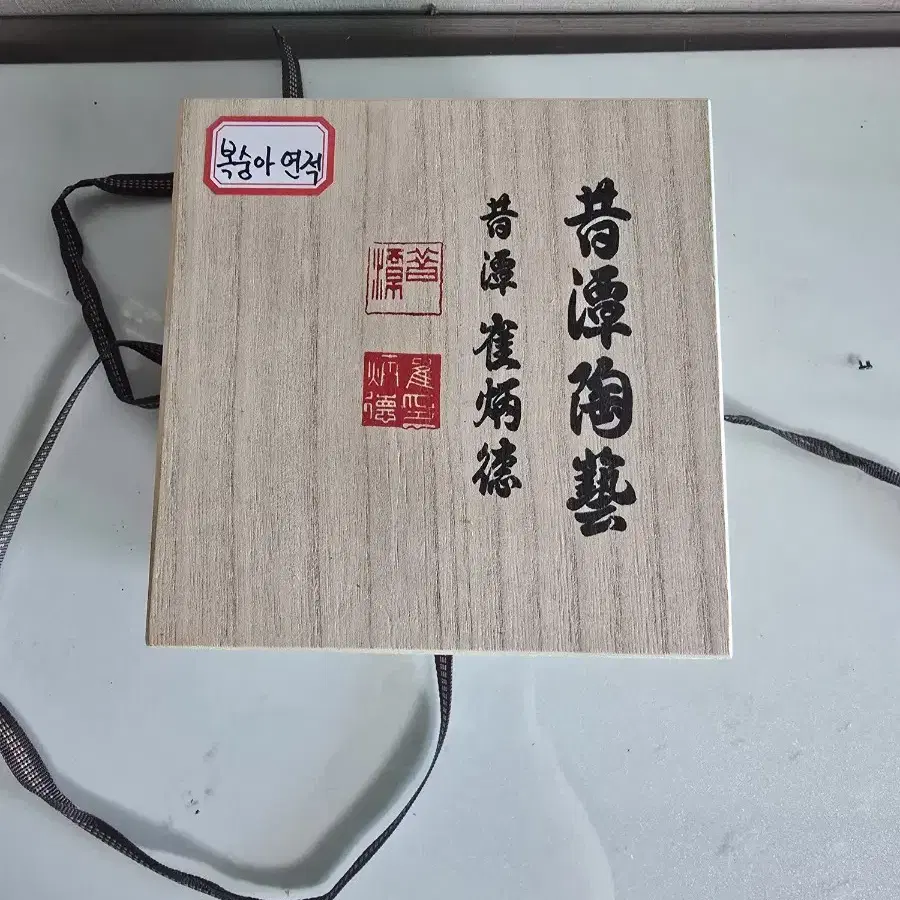 복숭아 연적
昔潭陶藝
昔潭 崔炳德
昔潭
崔炳德